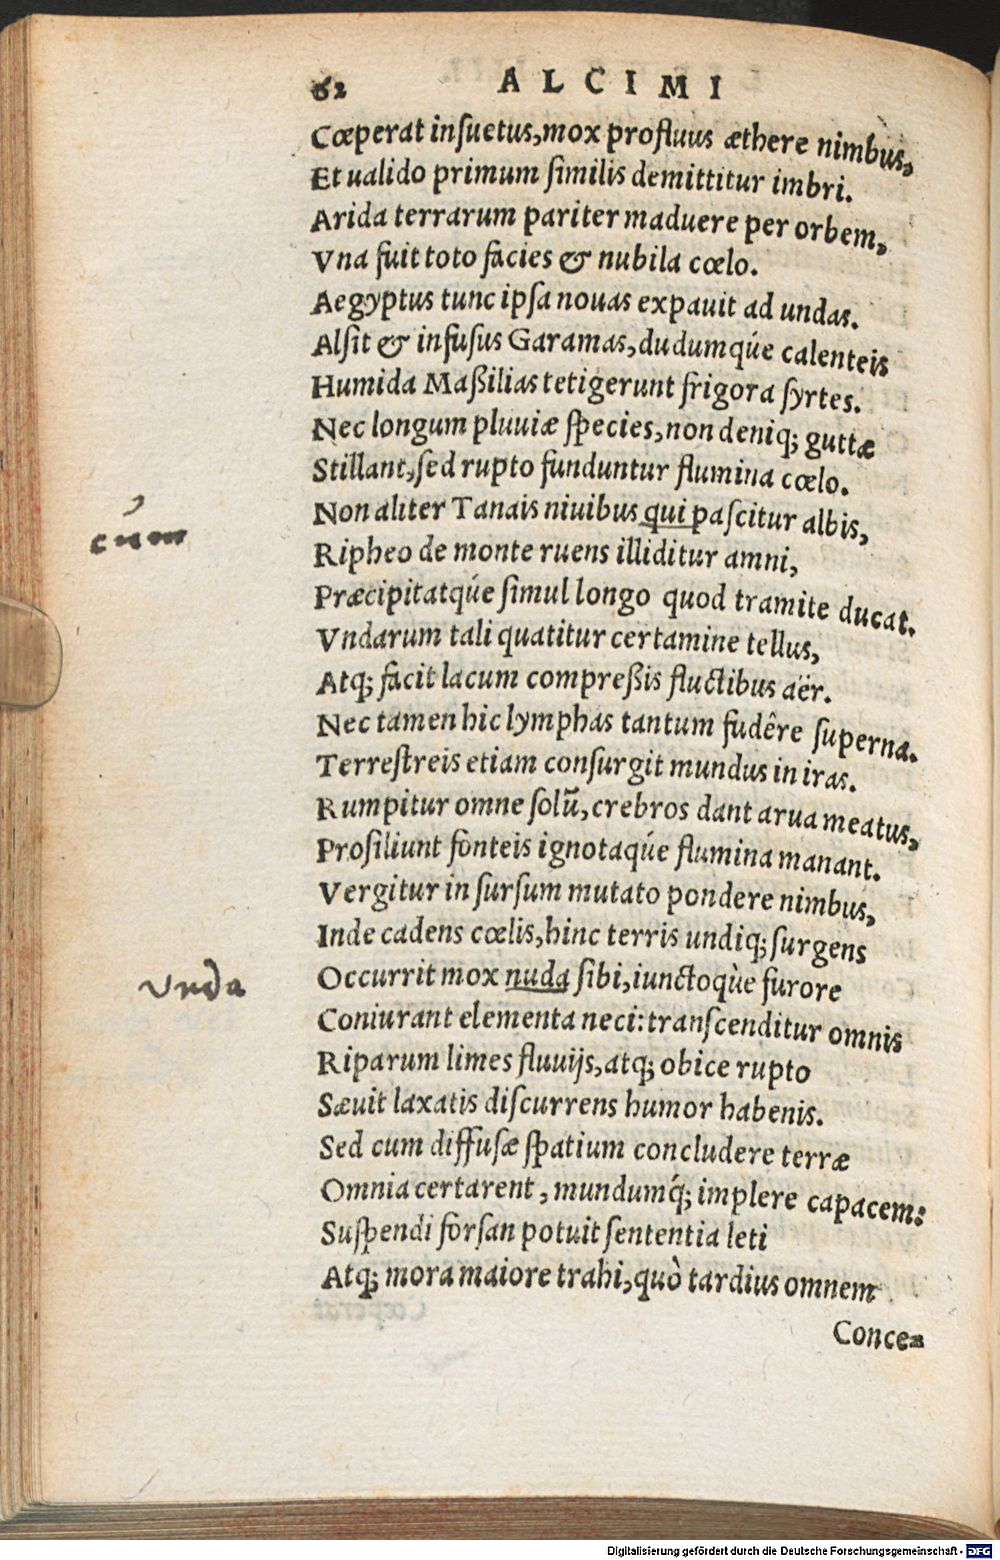 62 ALCIMI
Cœperat insuetus, mox profluus æthere nimbus,
Et ualido primum similis demittitur imbri.
Arida terrarum pariter maduere per orbem,
Vna fuit toto facies & nubila cœlo.
Aegyptus tunc ipsa nouas expauit ad undas.
Alsit & infusus Garamas, dudumqúe calenteis
Humida Maßilias tetigerunt frigora syrtes.
Nec longum pluuiæ species, non deniq; guttæ
Stillant, sed rupto funduntur flumina cœlo.
Non aliter Tanais niuibus qui pascitur albis,
cúm
Ripheo de monte ruens illiditur amni,
Præcipitatqúe simul longo quod tramite ducat.
Vndarum tali quatitur certamine tellus,
Atq; facit lacum compreßis fluctibus aër.
Nec tamen hic lymphas tantum fudêre superna.
Terrestreis etiam consurgit mundus in iras.
Rumpitur omne solũ, crebros dant arua meatus,
Prosiliunt fonteis ignotaqúe flumina manant.
Vergitur in sursum mutato pondere nimbus,
Inde cadens cœlis, hinc terris undiq; surgens
Occurrit mox nuda sibi, iunctoqùe furore
unda
Coniurant elementa neci: transcenditur omnis
Riparum limes fluuijs, atq; obice rupto
Sæuit laxatis discurrens humor habenis.
Sed cum diffusæ spatium concludere terræ
Omnia certarent, mundumq́; implere capacem:
Suspendi forsan potuit sententia leti
Atq; mora maiore trahi, quò tardius omnem
Conce-
Digitalisierung gefördert durch die Deutsche Forschungsgemeinschaft - DFG